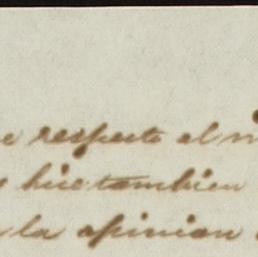 e respecto al
hice tambien
la opinion